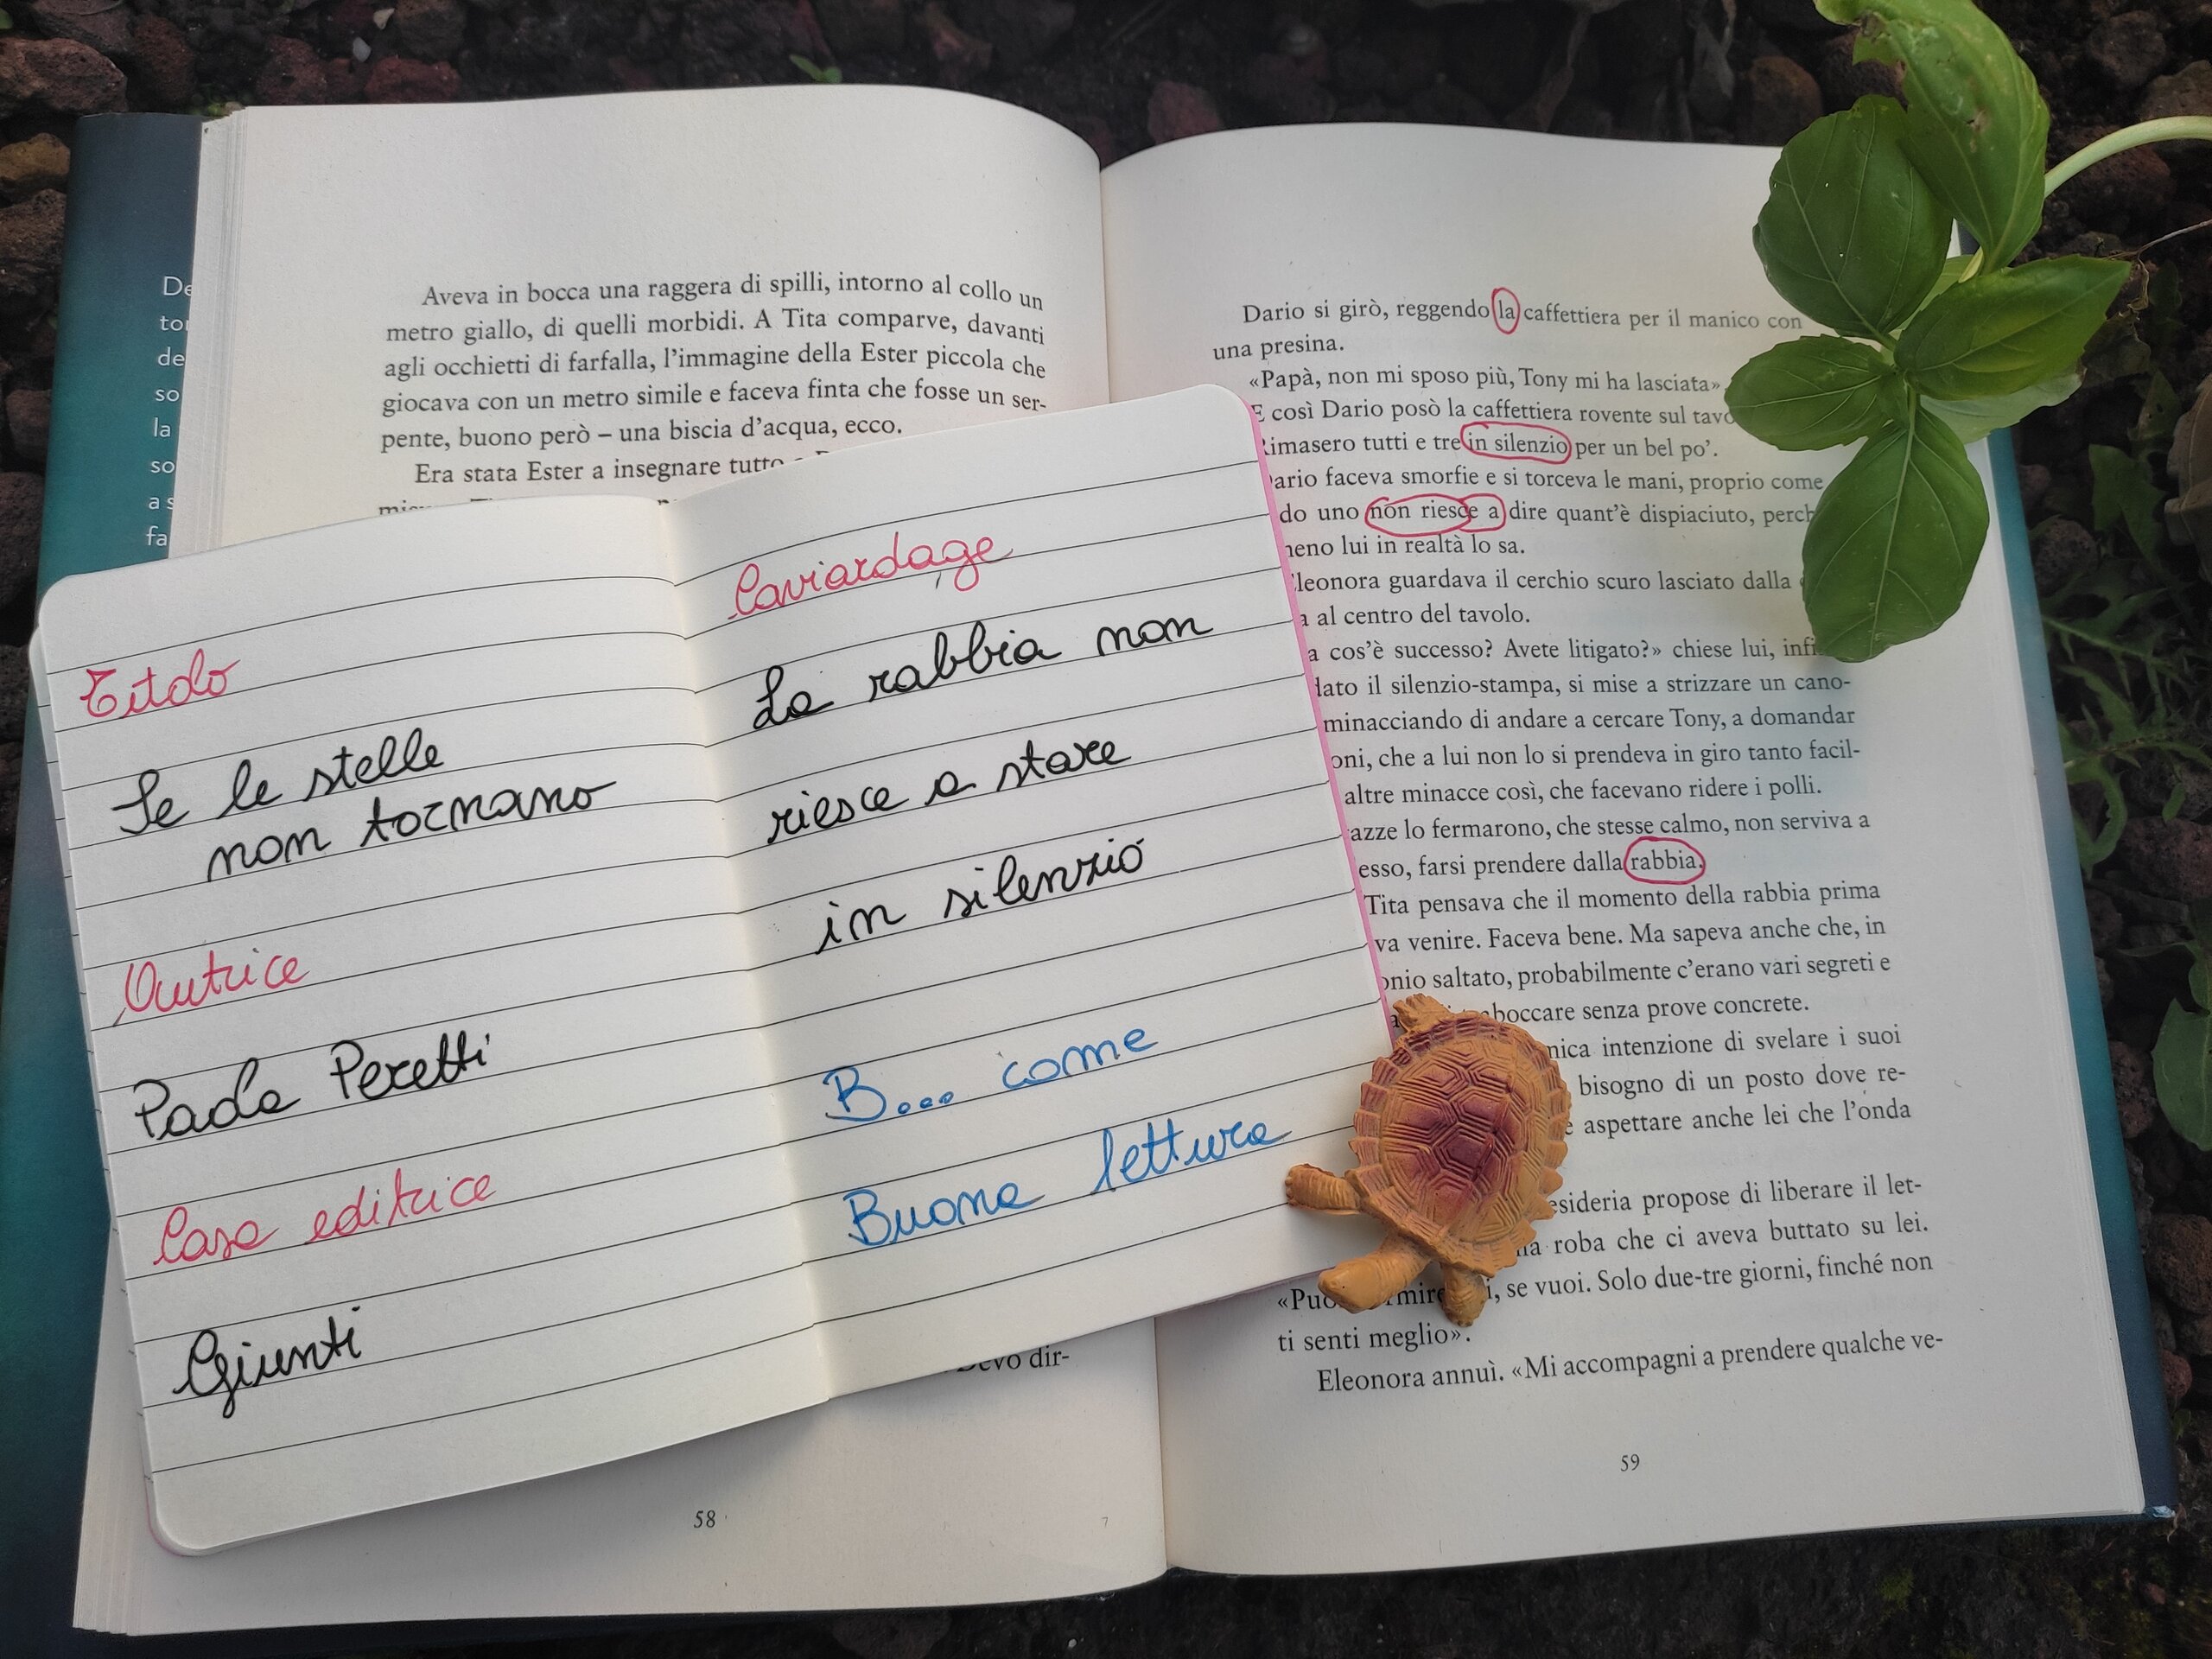 De
to
de
so
la
so
a s
fa
Aveva in bocca una raggera di spilli, intorno al collo un
metro giallo, di quelli morbidi. A Tita comparve, davanti
agli occhietti di farfalla, l'immagine della Ester piccola che
giocava con un metro simile e faceva finta che fosse un ser-
pente, buono però – una biscia d'acqua, ecco.
Era stata Ester a insegnare tutto
Devo dir-
58
7
Titolo
Se le stelle
non tornano
Autrice
Paola Peretti
Casa editrice
Giunti
Caviardage
La rabbia non
riesce a stare
in silenzio
B... come
Buona lettura
Dario si girò, reggendo la caffettiera per il manico con
una presina.
«Papà, non mi sposo più, Tony mi ha lasciata»
E così Dario posò la caffettiera rovente sul tavo
Rimasero tutti e tre in silenzio per un bel po'.
ario faceva smorfie e si torceva le mani, proprio come
do uno non riesce a dire quant'è dispiaciuto, perch
meno lui in realtà lo sa.
Eleonora guardava il cerchio scuro lasciato dalla
a al centro del tavolo.
a cos'è successo? Avete litigato?» chiese lui, infi
dato il silenzio-stampa, si mise a strizzare un cano-
minacciando di andare a cercare Tony, a domandar
oni, che a lui non lo si prendeva in giro tanto facil-
altre minacce così, che facevano ridere i polli.
azze lo fermarono, che stesse calmo, non serviva a
esso, farsi prendere dalla rabbia.
Tita pensava che il momento della rabbia prima
va venire. Faceva bene. Ma sapeva anche che, in
onio saltato, probabilmente c'erano vari segreti e
aboccare senza prove concrete.
nica intenzione di svelare i suoi
bisogno di un posto dove re-
e aspettare anche lei che l'onda
esideria propose di liberare il let-
na roba che ci aveva buttato su lei.
«Puo rmire i, se vuoi. Solo due-tre giorni, finché non
ti senti meglio».
Eleonora annuì. «Mi accompagni a prendere qualche ve-
59